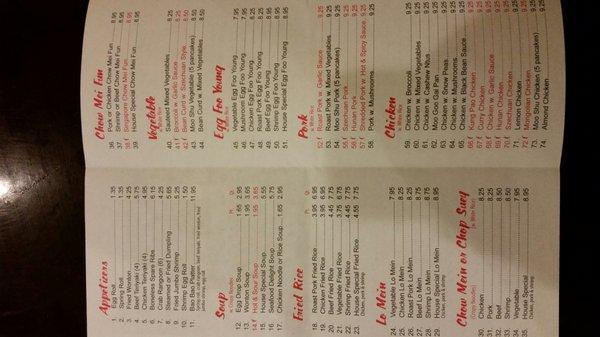 Appetizers
1. Egg Roll 1.35
2. Spring Roll 1.35
3. Fried Wonton 4.25
4. Beef Teriyaki (4) 5.75
5. Chicken Teriyaki (4) 4.95
6. Boneless Spare Ribs 6.15
7. Crab Rangoon (6) 4.25
8. Steamed or Fried Dumpling
9. Fried Jumbo Shrimp
10. Shrimp Egg Roll
11. Bao Bao Platter 11.95
Soup
(w. Crispy Noodles)
Pt. Qt.
12. Egg Drop Soup
13. Wonton Soup 1.95 3.65
14. Hot & Sour Soup 1.95 3.65
15. House Special Soup
16. Seafood Delight Soup 5.75
17. Chicken Noodle or Rice Soup 1.65 2.95
Fried Rice
Pt. Qt.
18. Roast Pork Fried Rice 3.95 6.95
19. Chicken Fried Rice 3.95 6.95
20. Beef Fried Rice 4.45 7.75
21. Vegetable Fried Rice
22. Shrimp Fried Rice 4.45 7.75
23. House Special Fried Rice 4.55 7.75
Chicken, pork & shrimp
Lo Mein
24. Vegetable Lo Mein 7.95
25. Chicken Lo Mein 8.25
26. Roast Pork Lo Mein 8.25
27. Beef Lo Mein 8.75
28. Shrimp Lo Mein 8.75
29. House Special Lo Mein 8.95
Chicken, pork & shrimp
Chow Mein or Chop Suey
(Crispy Noodles) (w. White Rice)
30. Chicken 8.25
31. Pork 8.25
32. Beef 8.50
33. Shrimp 8.50
34. Vegetable 7.95
35. House Special 8.95
Chicken, pork & shrimp
Chow Mei Fun
36. Pork or Chicken Chow Mei Fun 8.95
37. Shrimp or Beef Chow Mei Fun 8.95
38. Singapore Chow Mei Fun 8.95
39. House Special Chow Mei Fun 9.25
Vegetable
w. White Rice
40. Sauteed Mixed Vegetables 8.25
41. Broccoli w. Garlic Sauce 8.25
42. Bean Curd w. Szechuan Style
43. Moo Shu Vegetable (5 pancakes) 8.50
44. Bean Curd w. Mixed Vegetable 8.50
Egg Foo Young
w. White Rice
45. Vegetable Egg Foo Young 7.95
46. Mushroom Egg Foo Young 7.95
47. Chicken Egg Foo Young 8.25
48. Roast Pork Egg Foo Young 8.25
49. Beef Egg Foo Young
50. Shrimp Egg Foo Young
51. House Special Egg Foo Young 8.95
Pork
w. White Rice
52. Roast Pork w. Garlic Sauce 9.25
53. Roast Pork w. Mixed Vegetables 9.25
54. Moo Shu Pork (5 pancakes) 9.25
55. Szechuan Pork 9.25
56. Hunan Pork 9.25
57. Shredded Pork w. Hot & Spicy Sauce 9.25
58. Pork w. Mushrooms 9.25
Chicken
w. White Rice
59. Chicken w. Broccoli 9.25
60. Chicken w. Mixed Vegetables 9.25
61. Chicken w. Cashew Nuts 9.25
62. Moo Goo Gai Pan 9.25
63. Chicken w. Snow Peas 9.25
64. Chicken w. Mushrooms 9.25
65. Chicken w. Black Bean Sauce 9.25
66. Kung Pao Chicken 9.25
67. Curry Chicken 9.25
68. Chicken w. Garlic Sauce 9.25
69. Hunan Chicken 9.25
70. Szechuan Chicken 9.25
71. Lemon Chicken 9.25
72. Mongolian Chicken 9.25
73. Moo Shu Chicken (5 pancakes) 9.25
74. Almond Chicken 9.25